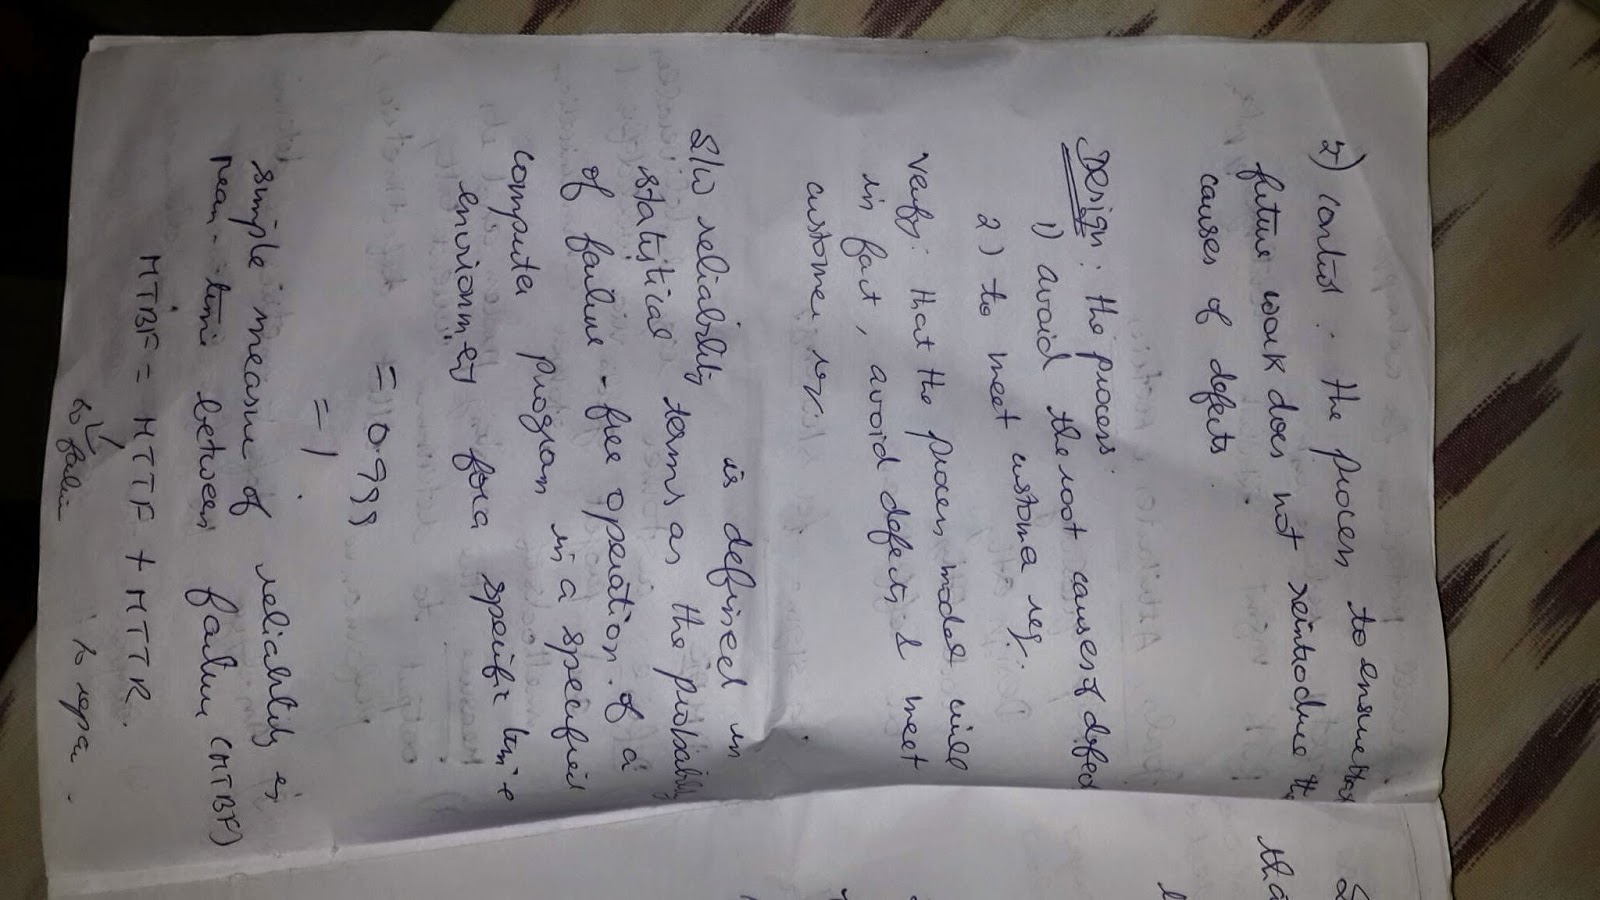 2) control : the process to ensure that
future work does not reintroduce the
causes of defects
Design : the process.
1) avoid the root causes of defect
2) to meet customer req.
Verify : that the process model will
in fact, avoid defects & meet
customer req.
S/W reliability is defined in
statistical terms as the probability
of failure-free operation of a
computer program in a specified
environment for a specific time
= 0.999
= 1
simple measure of reliability is
mean-time between failure (MTBF)
MTBF = MTTF + MTTR
to failure to repair.